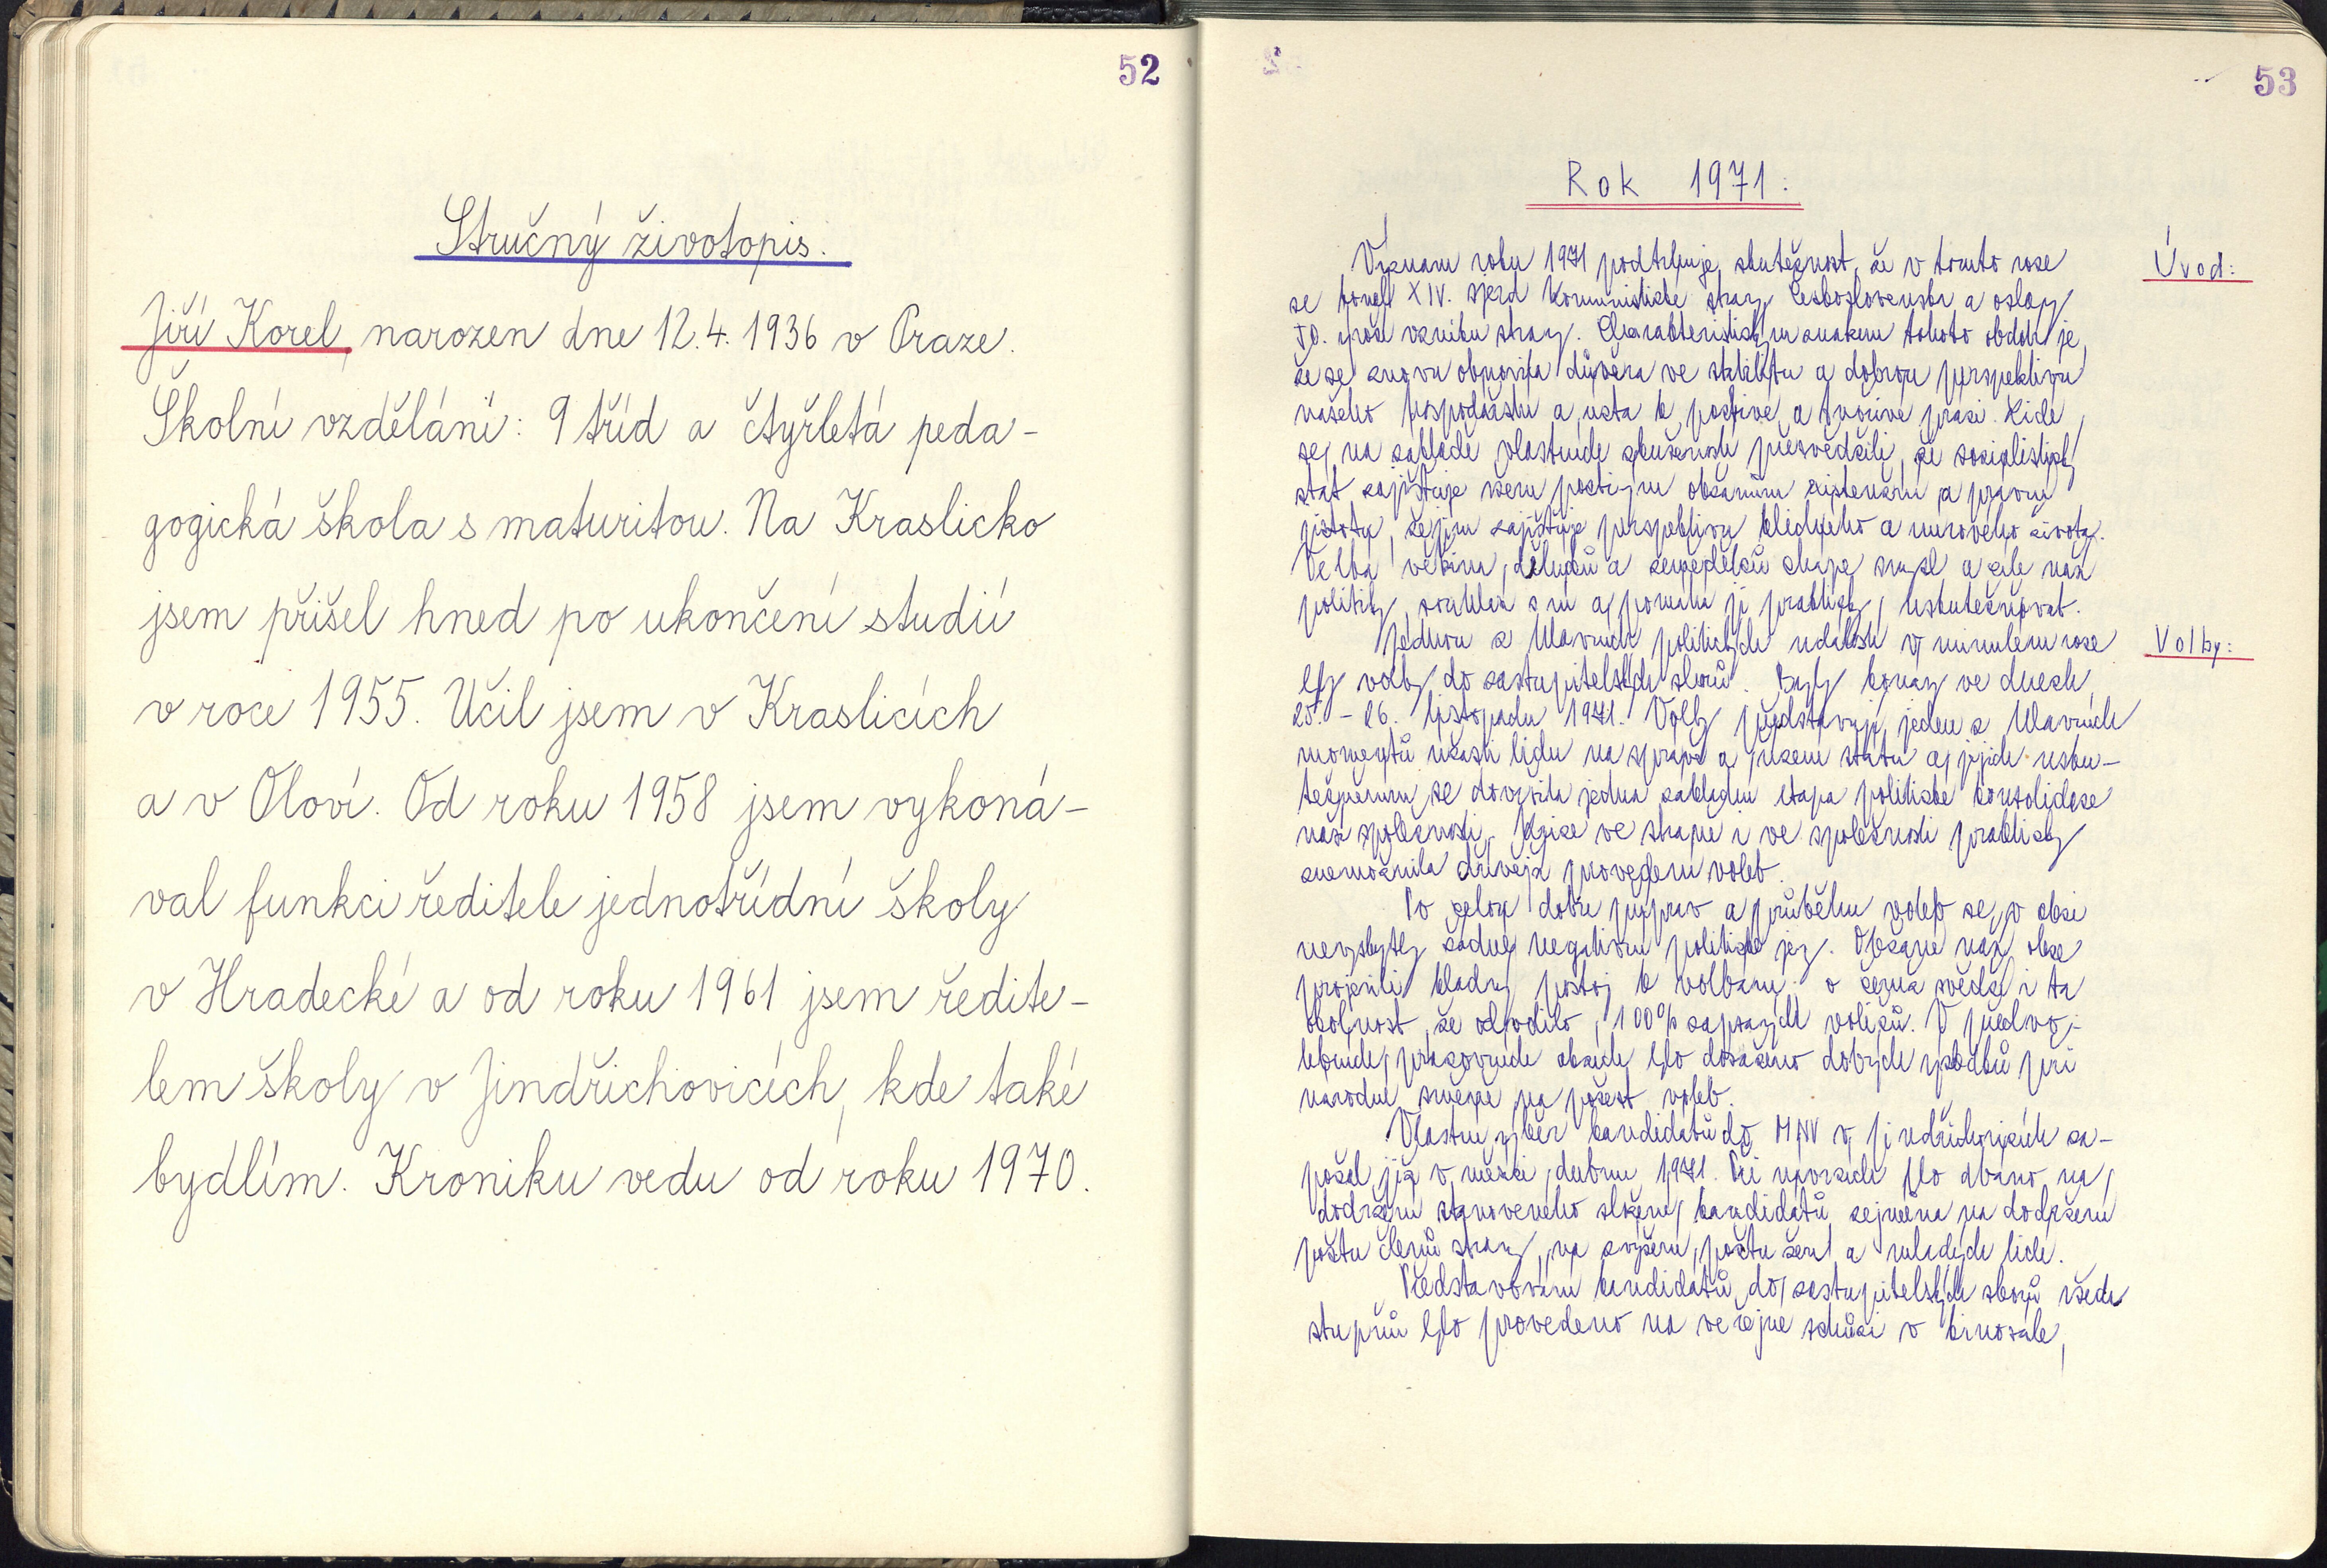 52
Stručný životopis.
Jiří Korel, narozen dne 12. 4. 1936 v Praze.
Školní vzdělání: 9 tříd a čtyřletá peda-
gogická škola s maturitou. Na Kraslicko
jsem přišel hned po ukončení studií
v roce 1955. Učil jsem v Kraslicích
a v Oloví. Od roku 1958 jsem vykoná-
val funkci ředitele jednotřídní školy
v Hradecké a od roku 1961 jsem ředite-
lem školy v Jindřichovicích, kde také
bydlím. Kroniku vedu od roku 1970.
53
Rok 1971:
Úvod:
Význam roku 1971 podtrhuje skutečnost, že v tomto roce
se konal XIV. sjezd Komunistické strany Československa a oslavy
50. výročí vzniku strany. Charakteristickým znakem tohoto období je,
že se znovu obnovila důvěra ve stabilitu a dobrou perspektivu
našeho hospodářství a úcta k poctivé a tvořivé práci. Lidé
se na základě vlastních zkušeností přesvědčili, že socialistický
stát zajišťuje všem poctivým občanům existenční a právní
jistoty, že jim zajišťuje perspektivu klidného a mírového života.
Velká většina dělníků a zemědělců chápe smysl a cíle naší
politiky, souhlasí s ní a pomáhá ji prakticky uskutečňovat.
Volby:
Jednou z hlavních politických událostí v minulém roce
byly volby do zastupitelských sborů. Byly konány ve dnech
25. - 26. listopadu 1971. Volby představují jeden z hlavních
momentů účasti lidu na správě a řízení státu a jejich usku-
tečněním se dovršila jedna základní etapa politické konsolidace
naší společnosti. Krize ve straně i ve společnosti prakticky
znemožnila dřívější provedení voleb.
Po celou dobu příprav a průběhu voleb se v obci
nevyskytly žádné negativní politické jevy. Občané naší obce
projevili kladný postoj k volbám, o čemž svědčí i ta
okolnost, že odvolilo 100% zapsaných voličů. V předvo-
lebních pracovních akcích bylo dosaženo dobrých výsledků při
národní směně na počest voleb.
Vlastní výběr kandidátů do MNV v Jindřichovicích za-
počal již v měsíci dubnu 1971. Při návrzích bylo dbáno na
dodržení stanoveného složení kandidátů, zejména na dodržení
počtu členů strany, na zvýšení počtu žen a mladých lidí.
Představování kandidátů do zastupitelských sborů všech
stupňů bylo provedeno na veřejné schůzi v kinosále,